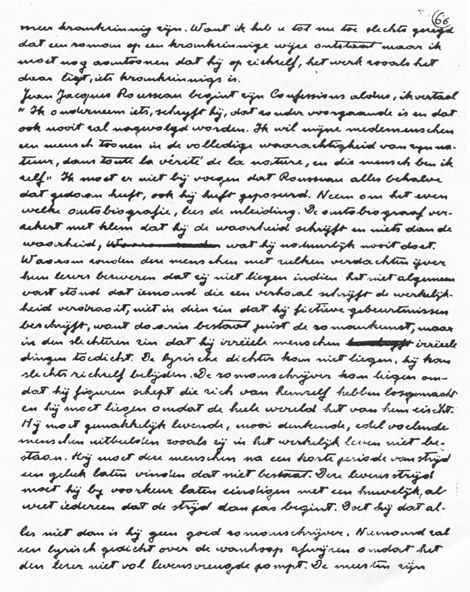 66
meer krankzinnig zijn. Want ik heb u tot nu toe slechts gezegd
dat een roman op een krankzinnige wijze ontstaat maar ik
moet nog aantoonen dat hij op zichzelf, het werk zooals het
daar ligt, iets krankzinnigs is.
Jean Jacques Rousseau begint zijn Confessions aldus, ik vertaal
"Ik onderneem iets, schrijft hij, dat zonder voorgaande is en dat
ook nooit zal nagevolgd worden. Ik wil mijne medemenschen
een mensch toonen in de volledige waarachtigheid van zijn na-
tuur, dans toute la vérité de la nature, en die mensch ben ik
zelf." Ik moet er niet bij voegen dat Rousseau alles behalve
dat gedaan heeft, ook hij heeft geposeerd. Neem om het even
welke autobiografie, lees de inleiding. De autobiograaf ver-
zekert met klem dat hij de waarheid schrijft en niets dan de
waarheid, wat hij natuurlijk nooit doet.
Waarom zouden deze menschen met zulken verdachten ijver
hun lezers beweren dat zij niet liegen indien het niet algemeen
vast stond dat iemand die een verhaal schrijft de werkelijk-
heid verdraait, niet in dien zin dat hij fictieve gebeurtenissen
beschrijft, want daarin bestaat juist de romankunst, maar
in den slechteren zin dat hij irreëele menschen irreëele
dingen toedicht. De lyrische dichter kan niet liegen, hij kan
slechts zichzelf belijden. De romanschrijver kan liegen om-
dat hij figuren schept die zich van hemzelf hebben losgemaakt
en hij moet liegen omdat de heele wereld het van hem eischt.
Hij moet gemakkelijk levende, mooi denkende, edel voelende
menschen uitbeelden zooals zij in het werkelijk leven niet be-
staan. Hij moet deze menschen na een korte periode van strijd
een geluk laten vinden dat niet bestaat. Deze levensstrijd
moet hij bij voorkeur laten eindigen met een huwelijk, al
weet iedereen dat de strijd dan pas begint. Doet hij dat al-
les niet dan is hij geen goed romanschrijver. Niemand zal
een lyrisch gedicht over de wanhoop afwijzen omdat het
den lezer niet vol levensvreugde pompt. De meesten zijn